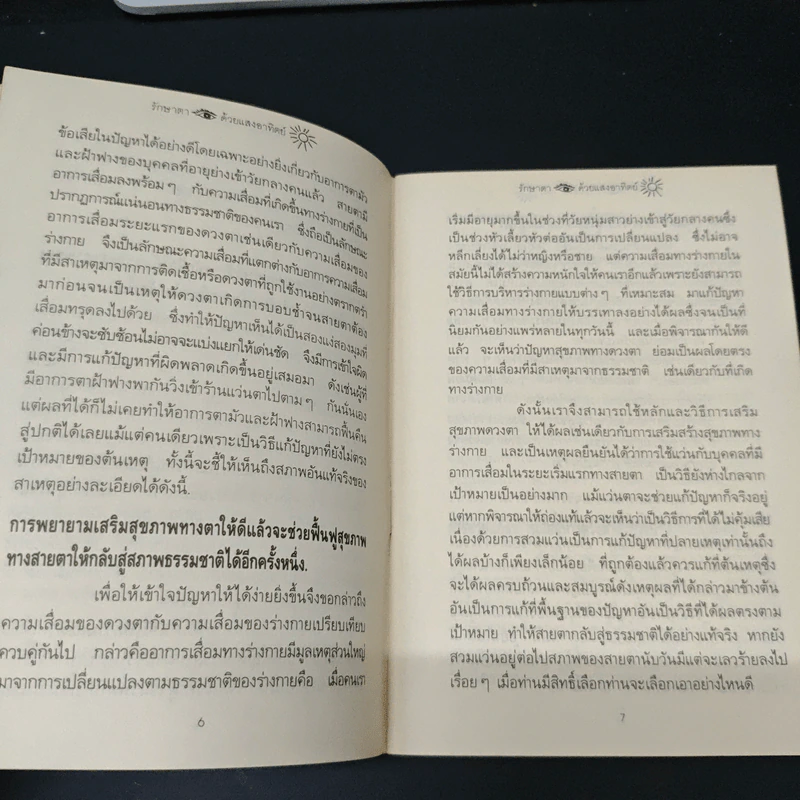 รักษาตา ด้วยแสงอาทิตย์
ข้อเสียในปัญหาได้อย่างดีโดยเฉพาะอย่างยิ่งเกี่ยวกับอาการตามัว
และฝ้าฟางของบุคคลที่อายุย่างเข้าวัยกลางคนแล้ว สายตามี
อาการเสื่อมลงพร้อมๆ กับความเสื่อมที่เกิดขึ้นทางร่างกายที่เป็น
ปรากฏการณ์แน่นอนทางธรรมชาติของคนเรา ซึ่งถือเป็นลักษณะ
อาการเสื่อมระยะแรกของดวงตาเช่นเดียวกับความเสื่อมของ
ร่างกาย จึงเป็นลักษณะความเสื่อมที่แตกต่างกับอาการความเสื่อม
ที่มีสาเหตุมาจากการติดเชื้อหรือดวงตาที่ถูกใช้งานอย่างตรากตรำ
มาก่อนจนเป็นเหตุให้ดวงตาเกิดการบอบช้ำจนสายตาต้อง
เสื่อมทรุดลงไปด้วย ซึ่งทำให้ปัญหาเห็นได้เป็นสองแง่สองมุมที่
ค่อนข้างจะซับซ้อนไม่อาจจะแบ่งแยกให้เด่นชัด จึงมีการเข้าใจผิด
และมีการแก้ปัญหาที่ผิดพลาดเกิดขึ้นอยู่เสมอมา ดังเช่นผู้ที่
มีอาการตาฝ้าฟางพากันวิ่งเข้าร้านแว่นตาไปตามๆ กันนั่นเอง
แต่ผลที่ได้ก็ไม่เคยทำให้อาการตามัวและฝ้าฟางสามารถฟื้นคืน
สู่ปกติได้เลยแม้แต่คนเดียวเพราะเป็นวิธีแก้ปัญหาที่ยังไม่ตรง
เป้าหมายของต้นเหตุ ทั้งนี้จะชี้ให้เห็นถึงสภาพอันแท้จริงของ
สาเหตุอย่างละเอียดได้ดังนี้.
การพยายามเสริมสุขภาพทางตาให้ดีแล้วจะช่วยฟื้นฟูสุขภาพ
ทางสายตาให้กลับสู่สภาพธรรมชาติได้อีกครั้งหนึ่ง.
เพื่อให้เข้าใจปัญหาให้ได้ง่ายยิ่งขึ้นจึงขอกล่าวถึง
ความเสื่อมของดวงตากับความเสื่อมของร่างกายเปรียบเทียบ
ควบคู่กันไป กล่าวคืออาการเสื่อมทางร่างกายมีมูลเหตุส่วนใหญ่
มาจากการเปลี่ยนแปลงตามธรรมชาติของร่างกายคือ เมื่อคนเรา
6
รักษาตา ด้วยแสงอาทิตย์
เริ่มมีอายุมากขึ้นในช่วงที่วัยหนุ่มสาวย่างเข้าสู่วัยกลางคนซึ่ง
เป็นช่วงหัวเลี้ยวหัวต่ออันเป็นการเปลี่ยนแปลง ซึ่งไม่อาจ
หลีกเลี่ยงได้ไม่ว่าหญิงหรือชาย แต่ความเสื่อมทางร่างกายใน
สมัยนี้ไม่ได้สร้างความหนักใจให้คนเราอีกแล้วเพราะยังสามารถ
ใช้วิธีการบริหารร่างกายแบบต่างๆ ที่เหมาะสม มาแก้ปัญหา
ความเสื่อมทางร่างกายให้บรรเทาลงอย่างได้ผลซึ่งจนเป็นที่
นิยมกันอย่างแพร่หลายในทุกวันนี้ และเมื่อพิจารณากันให้ดี
แล้ว จะเห็นว่าปัญหาสุขภาพทางดวงตา ย่อมเป็นผลโดยตรง
ของความเสื่อมที่มีสาเหตุมาจากธรรมชาติ เช่นเดียวกับที่เกิด
ทางร่างกาย
ดังนั้นเราจึงสามารถใช้หลักและวิธีการเสริม
สุขภาพดวงตา ให้ได้ผลเช่นเดียวกับการเสริมสร้างสุขภาพทาง
ร่างกาย และเป็นเหตุผลยืนยันได้ว่าการใช้แว่นกับบุคคลที่มี
อาการเสื่อมในระยะเริ่มแรกทางสายตา เป็นวิธียังห่างไกลจาก
เป้าหมายเป็นอย่างมาก แม้แว่นตาจะช่วยแก้ปัญหาก็จริงอยู่
แต่หากพิจารณาให้ถ่องแท้แล้วจะเห็นว่าเป็นวิธีการที่ได้ไม่คุ้มเสีย
เนื่องด้วยการสวมแว่นเป็นการแก้ปัญหาที่ปลายเหตุเท่านั้นถึง
ได้ผลบ้างก็เพียงเล็กน้อย ที่ถูกต้องแล้วควรแก้ที่ต้นเหตุซึ่ง
จะได้ผลครบถ้วนและสมบูรณ์ดังเหตุผลที่ได้กล่าวมาข้างต้น
อันเป็นการแก้ที่พื้นฐานของปัญหาอันเป็นวิธีที่ได้ผลตรงตาม
เป้าหมาย ทำให้สายตากลับสู่ธรรมชาติได้อย่างแท้จริง หากยัง
สวมแว่นอยู่ต่อไปสภาพของสายตานับวันมีแต่จะเลวร้ายลงไป
เรื่อยๆ เมื่อท่านมีสิทธิ์เลือกท่านจะเลือกเอาอย่างไหนดี
7